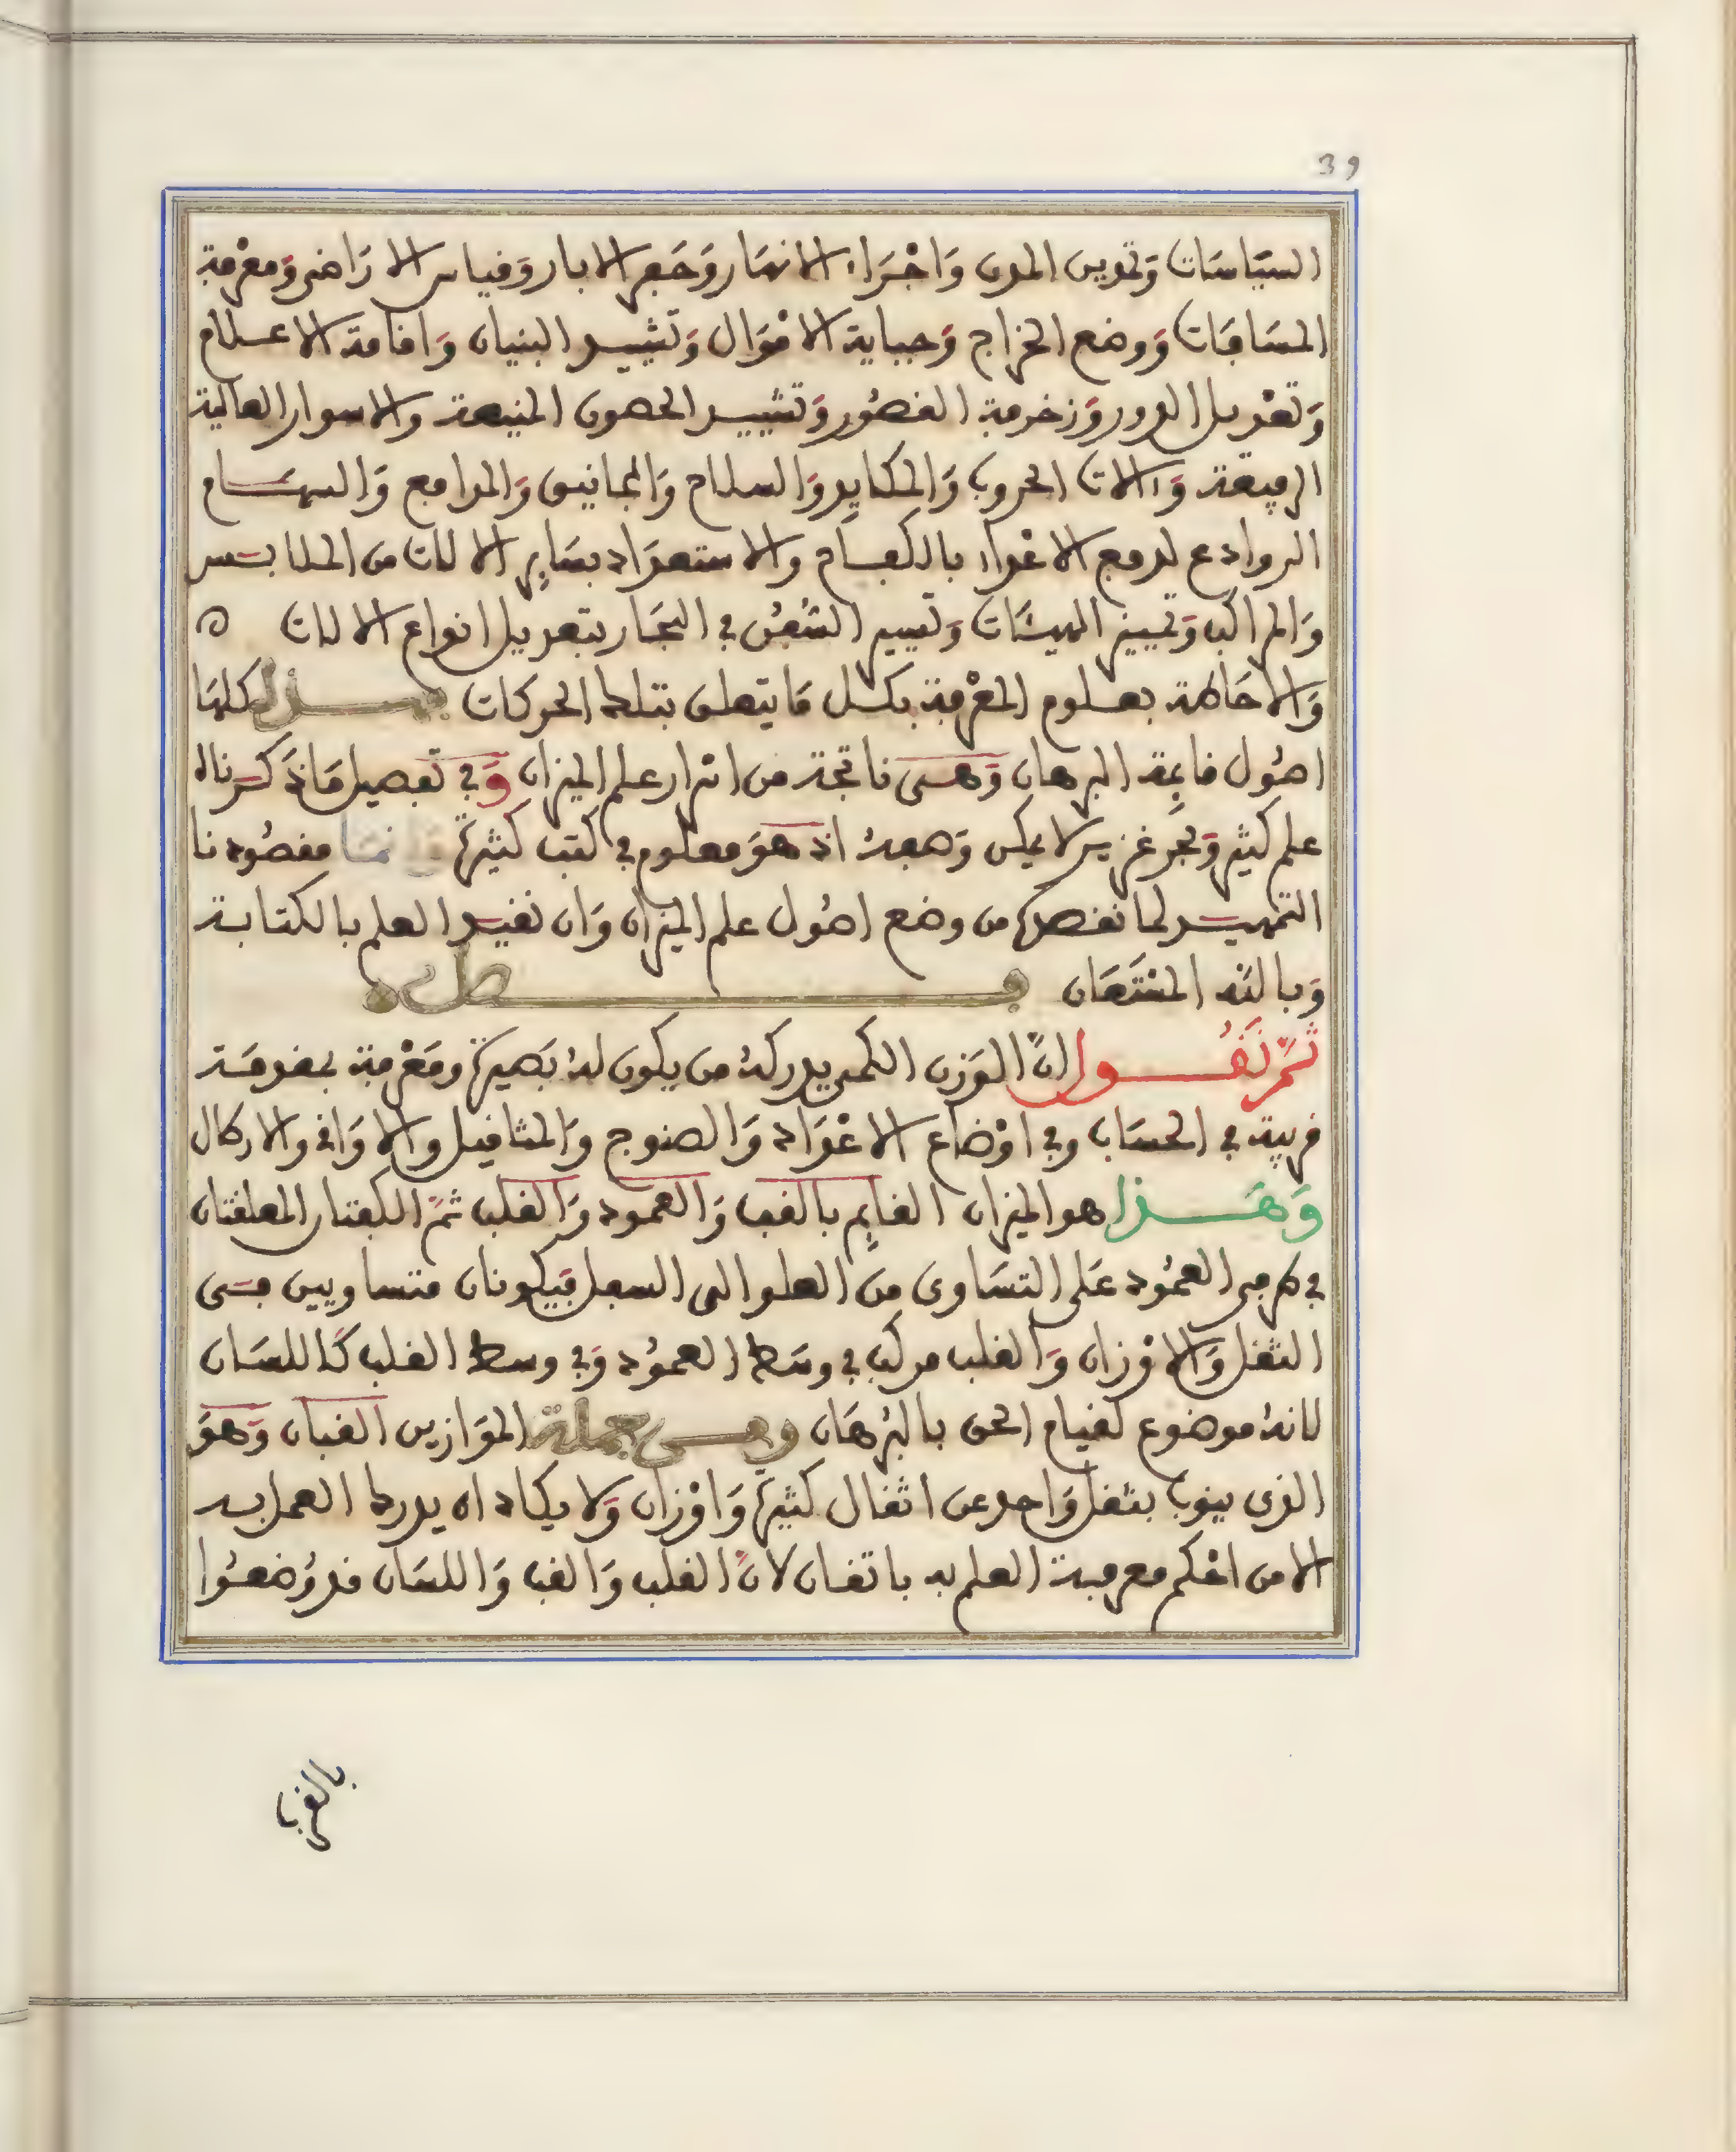 39
السيَاسَات وَتمدين المدن وَاجْرَاء الانهَار وَحَفر الابار وَقياس الارَاضى وَمعْرفة
المسَافَات وَوضع الخراج وَجباية الامْوَال وَتشييد البنيان وَاقامة الاعلام
وَتعْديل الدور وَزخرفة القصُور وَتشييد الحصون المنيعة والاسوار العالية
الرفيعة وَالات الحروب وَالمكايد وَالسلاح وَالمجانيق وَالمدافع وَالسهام
الروادع لدفع الاعْداء بالكفاح والاستعدَاد بسَاير الالات من الملابس
وَالمراكب وَتمييز الهيئات وَتسيير السُفُن في البحَار بتعديل انواع الالات ه
وَالاحَاطة بعلوم المعْرفة بكل مَا يتعلق بتلك الحركات فهذه كلهَا
اصُول قايمة البرهان وَهى ناتجة من اسْرار علم الميزان وَفي تفصيل مَا ذكرناه
علم كثير وَبحر غزير لا يمكن وَصفهُ اذ هوَ معلوم في كتب كثيرة وَانمَا مقصُودنا
التمهيد لما نقصده من وضع اصُول علم الميزان وَان نقيد العلم بالكتابة
وَبالله المسْتَعَان فصل
ثمَّ نَقُول انَّ الوَزن الكمى يدركهُ من يكون لهُ بَصيرة ومَعْرفة بمقدمَة
قريبة في الحسَاب وفي اوْضاع الاعْوَاد وَالصنوج وَالمثاقيل والاوَاقى والارطال
وَهَذا هو الميزان القايم بالقب وَالعمود وَالقلب ثمَّ الكفتان المعلقتان
في طرفى العمُود عَلى التسَاوى من العلو الى السفل فيكونان متساويين فى
الثقل وَالاوْزان وَالقلب مركب في وسَط العمُود وَفي وسط القلب كاللسَان
لانهُ موضوع لقيام الحق بالبُرهَان وفى جملة الموَازين القبان وَهوَ
الذى ينوب بثقل وَاحد عن اثقال كثيرة وَاوْزان وَلا يكاد ان يدرك العمل به
الا من احْكم معرفة العلم به باتقان لانَّ القلب وَالقب وَاللسَان قد وُضعُوا
بالقرب